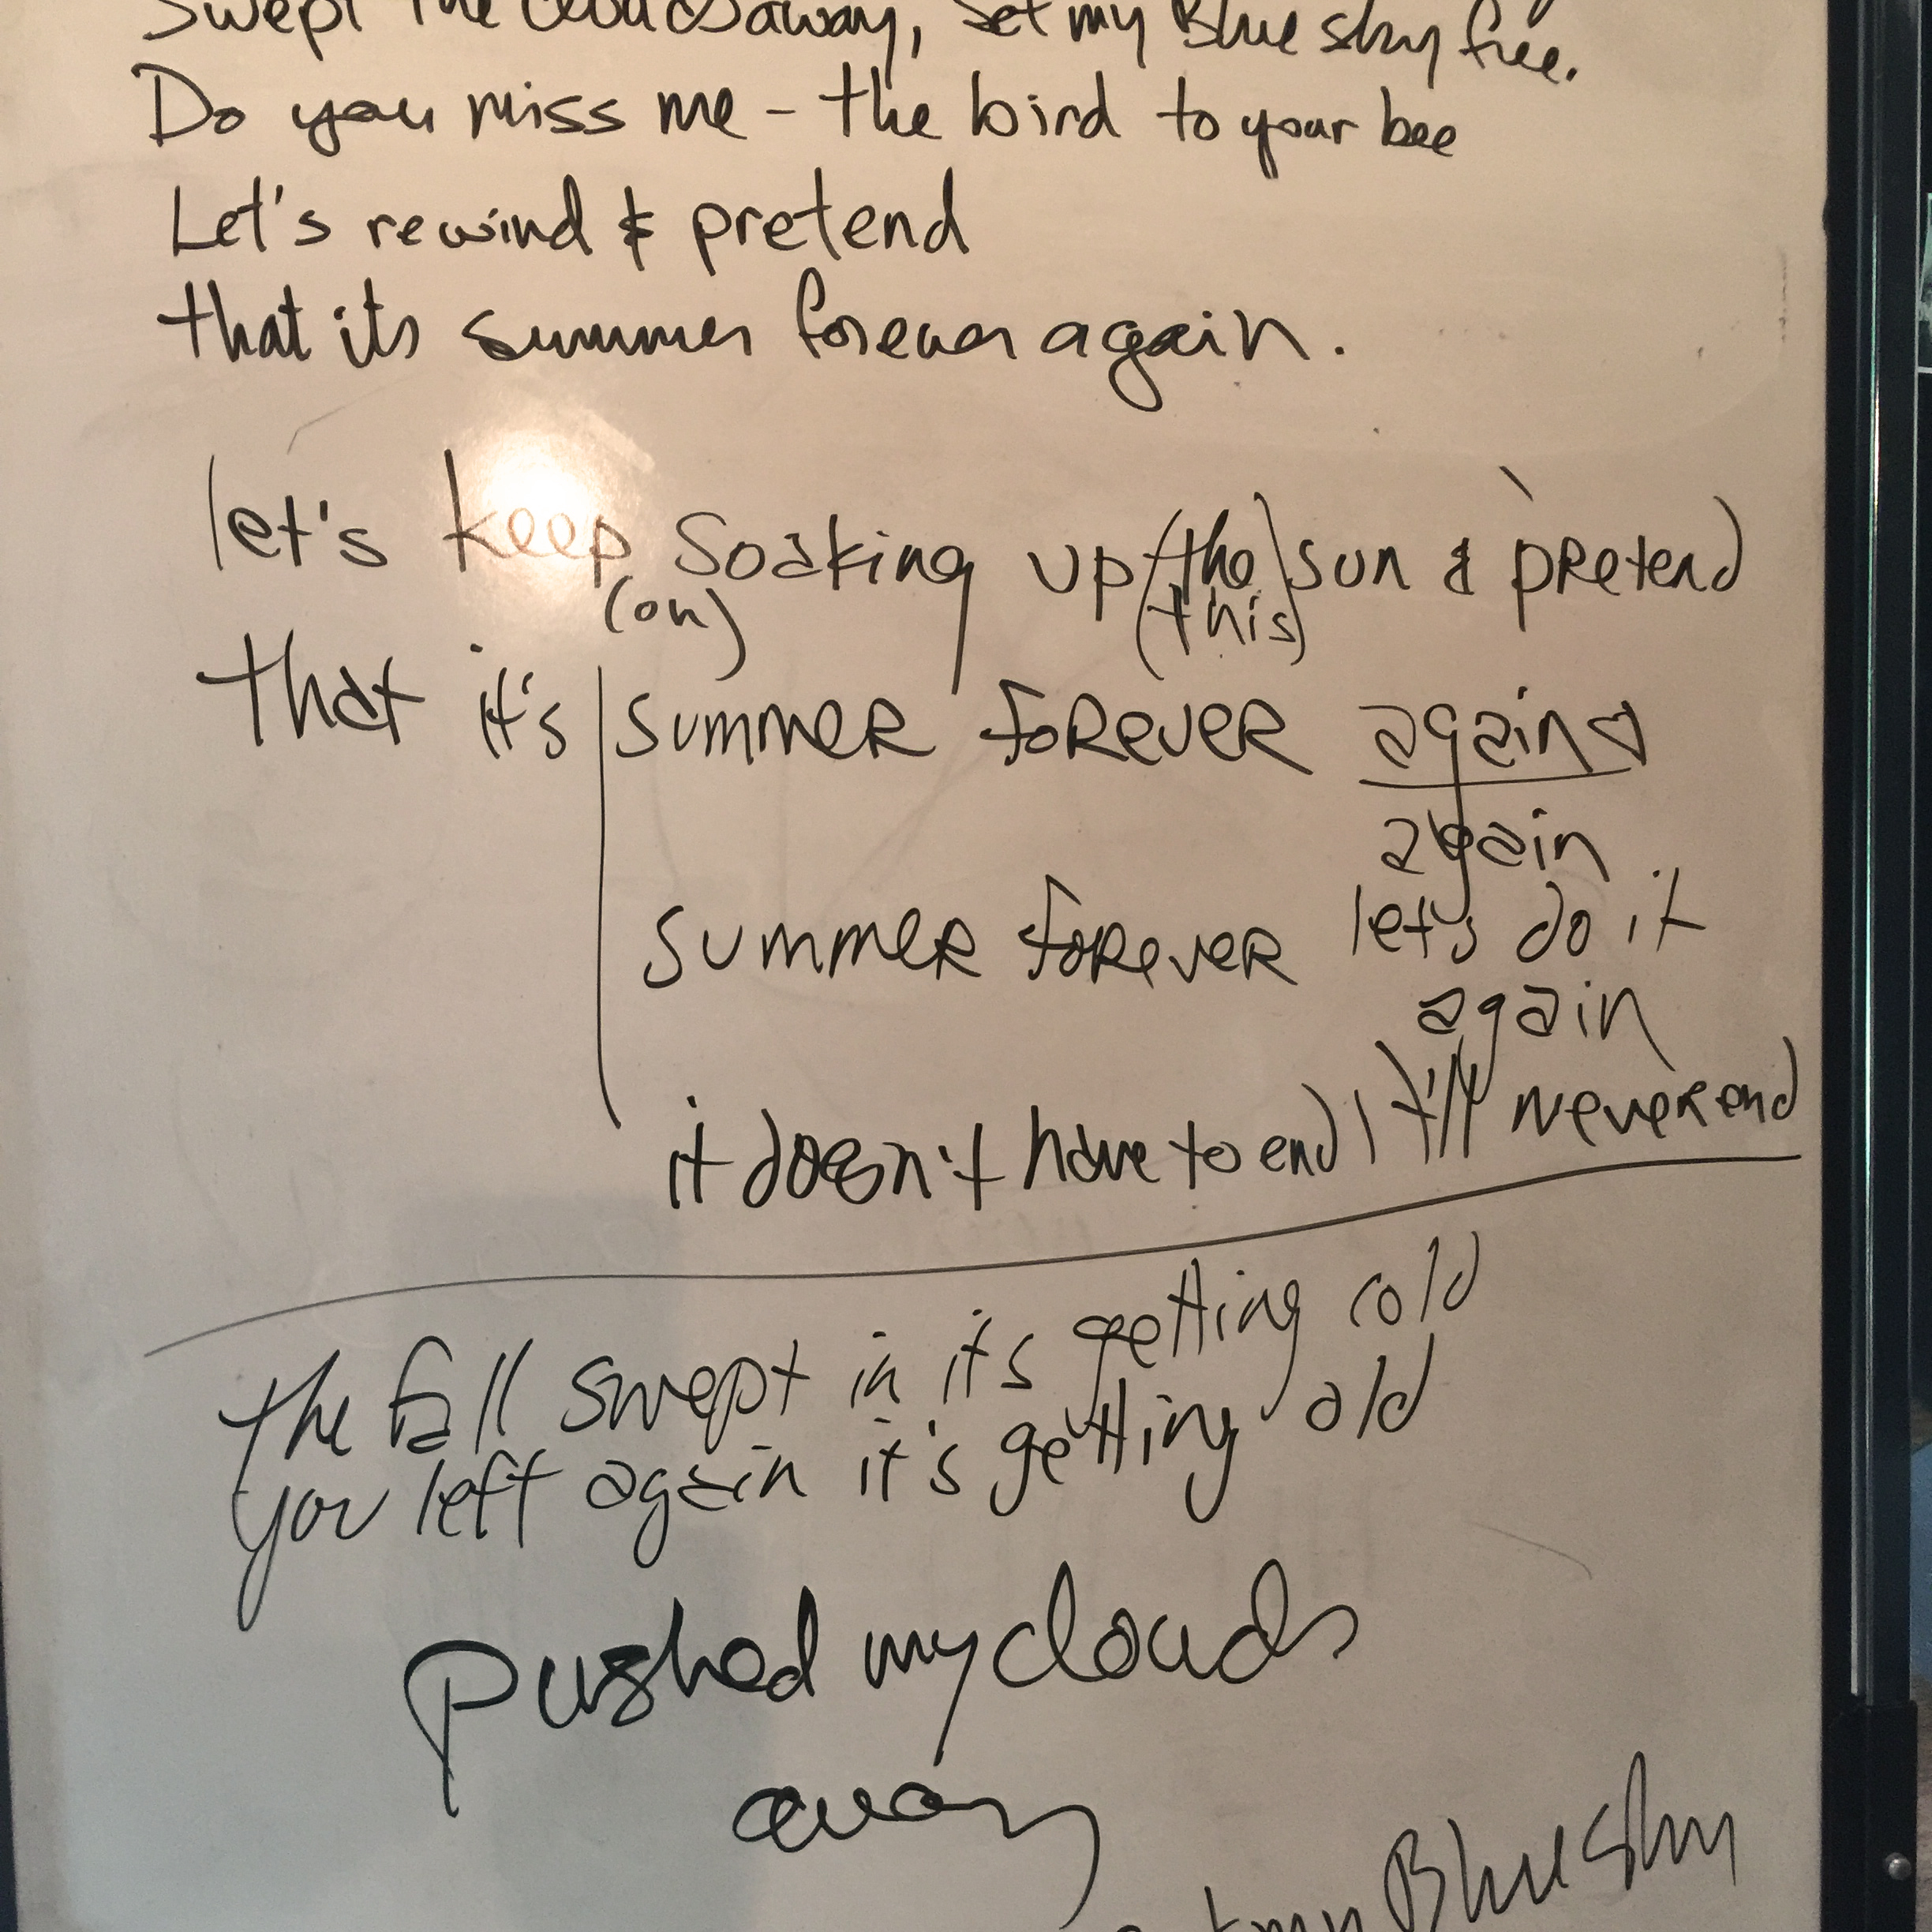 Swept the clouds away, set my Blue sky free.
Do you miss me - the bird to your bee
Let's rewind & pretend
that its summer forever again.
let's keep soaking up (the) sun & pretend
(on) (this)
that it's summer forever again
again
summer forever let's do it
again
it doesn't have to end / it'll never end
the fall swept in it's getting cold
you left again it's getting old
pushed my clouds
away
my Blue Sky